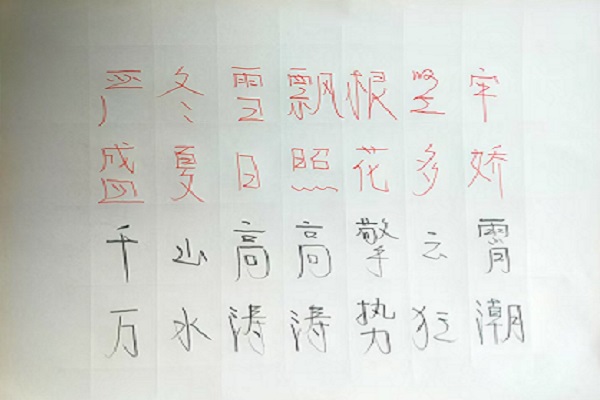 严冬雪飘根坚牢
盛夏日照花多娇
千山高高擎云霄
万水涛涛势狂潮